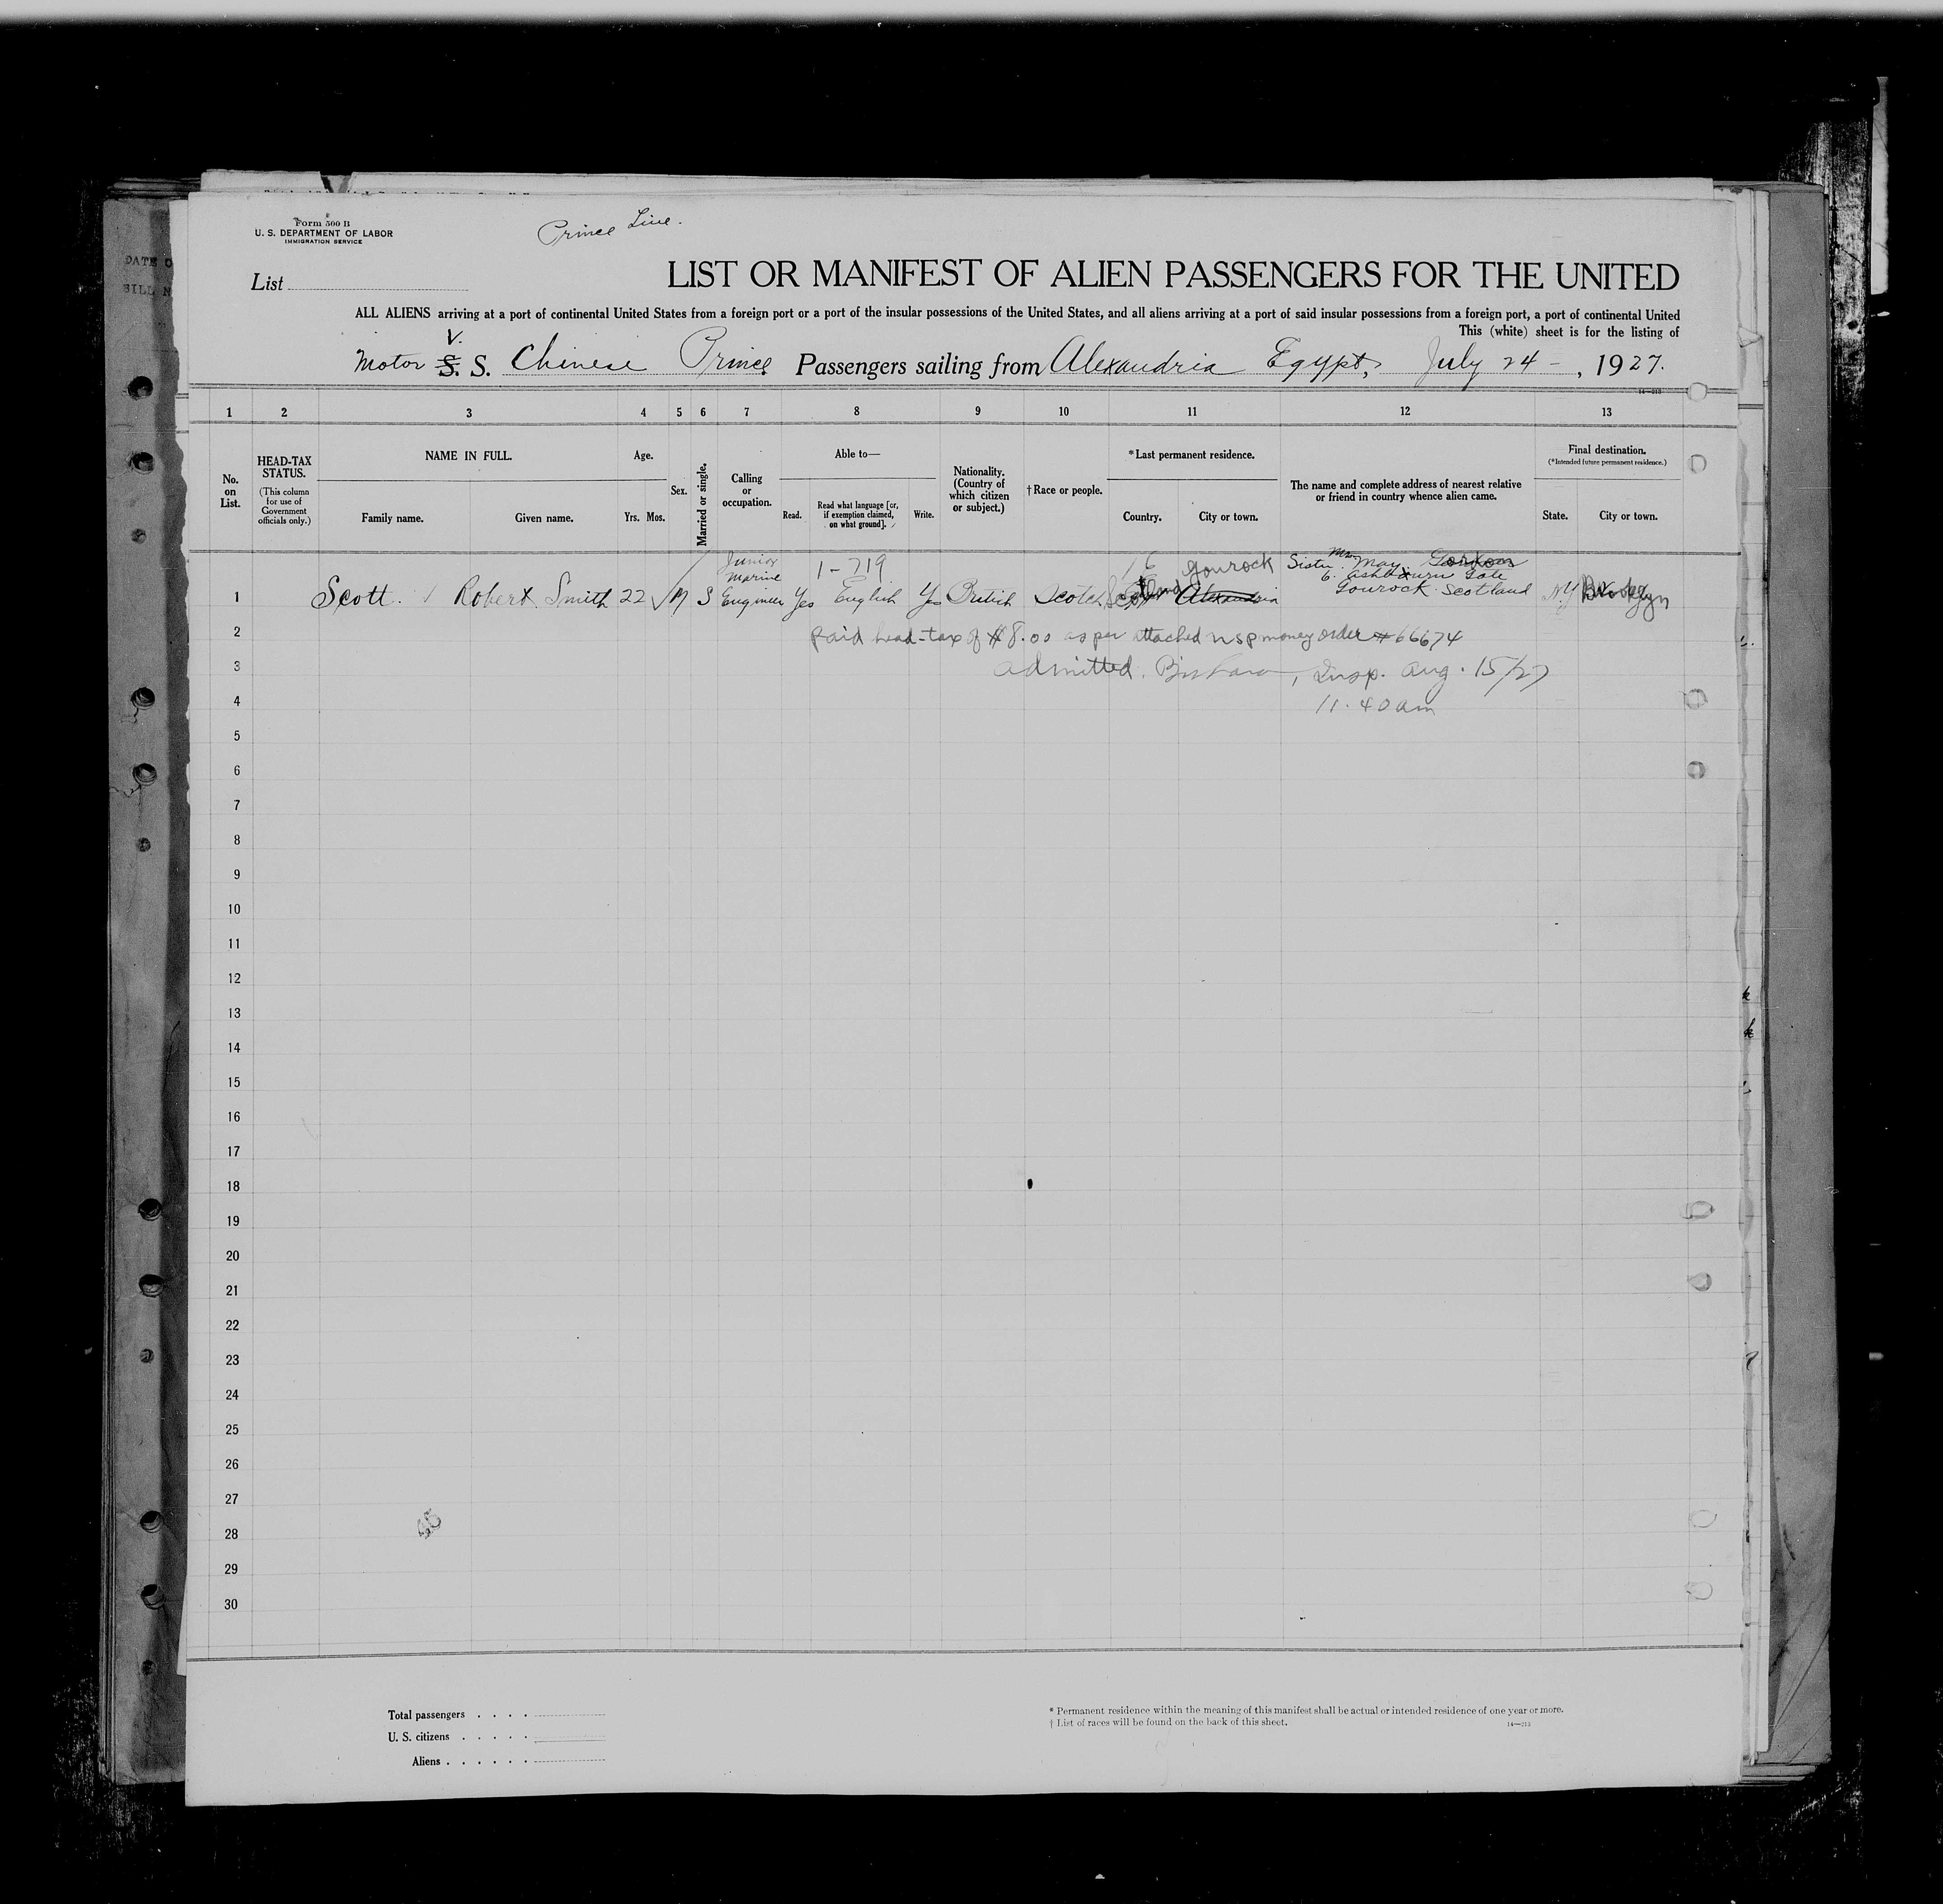 Form 500 B
U. S. DEPARTMENT OF LABOR
IMMIGRATION SERVICE
Prince Line.
List
LIST OR MANIFEST OF ALIEN PASSENGERS FOR THE UNITED
ALL ALIENS arriving at a port of continental United States from a foreign port or a port of the insular possessions of the United States, and all aliens arriving at a port of said insular possessions from a foreign port, a port of continental United
This (white) sheet is for the listing of
Motor V. S. S. Chinese Prince Passengers sailing from Alexandria Egypt, July 24 - , 1927.
14—213
1 2 3 4 5 6 7 8 9 10 11 12 13
No. on List.
HEAD-TAX STATUS.
(This column for use of Government officials only.)
NAME IN FULL.
Family name. Given name.
Age.
Yrs. Mos.
Sex.
Married or single.
Calling or occupation.
Able to—
Read. Read what language [or, if exemption claimed, on what ground]. Write.
Nationality. (Country of which citizen or subject.)
† Race or people.
* Last permanent residence.
Country. City or town.
The name and complete address of nearest relative or friend in country whence alien came.
Final destination.
(*Intended future permanent residence.)
State. City or town.
Junior Marine 1-719 Gourock Sister Mrs May Gordon
6. Ashburn Gate
1 Scott. Robert Smith 22 M S Engineer Yes English Yes British Scotch Scotland Alexandria Gourock Scotland N.Y. Brooklyn
2 Paid head-tax of $8.00 as per attached nsp money order #66674
3 Admitted. Insp. Aug. 15/27
4 11.40 am
5
6
7
8
9
10
11
12
13
14
15
16
17
18
19
20
21
22
23
24
25
26
27
28
29
30
Total passengers
U. S. citizens
Aliens
* Permanent residence within the meaning of this manifest shall be actual or intended residence of one year or more.
† List of races will be found on the back of this sheet.
14—213